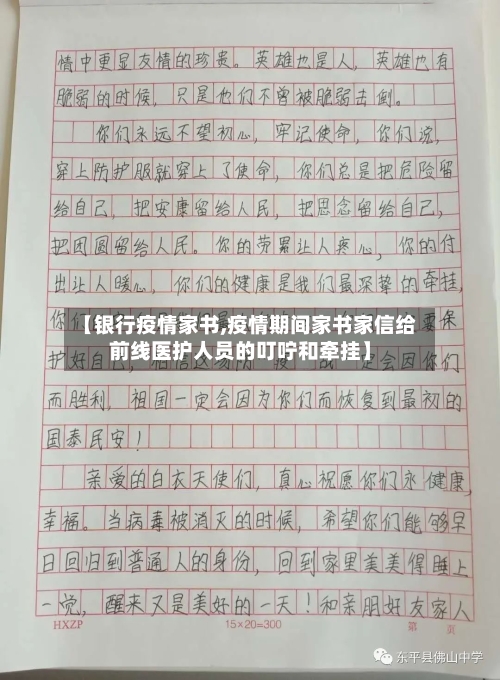 情中更显友情的珍贵。英雄也是人，英雄也有
脆弱的时候，只是他们不曾被脆弱击倒。
你们永远不望初心，牢记使命，你们说，
穿上防护服就穿上了使命，你们总是把危险留
给自己，把安康留给人民，把思念留给自己，
把团圆留给人民。你的劳累让人疼心，你的付
出让人暖心，你们的健康是我们最深挚的牵挂，
【银行疫情家书,疫情期间家书家信给
前线医护人员的叮咛和牵挂】
你们
要保
护好自己
一定会因你们
而胜利，祖国一定会因为你们而恢复到最初的
国泰民安！
亲爱的白衣天使们，真心祝愿你们永健康，
幸福。当病毒被消灭的时候，希望你们能够早
日回归到普通人的身份，回到家里美美得睡上
一觉，醒来又是美好的一天！和亲朋好友家人
HXZP 15×20=300 第 页
东平县佛山中学